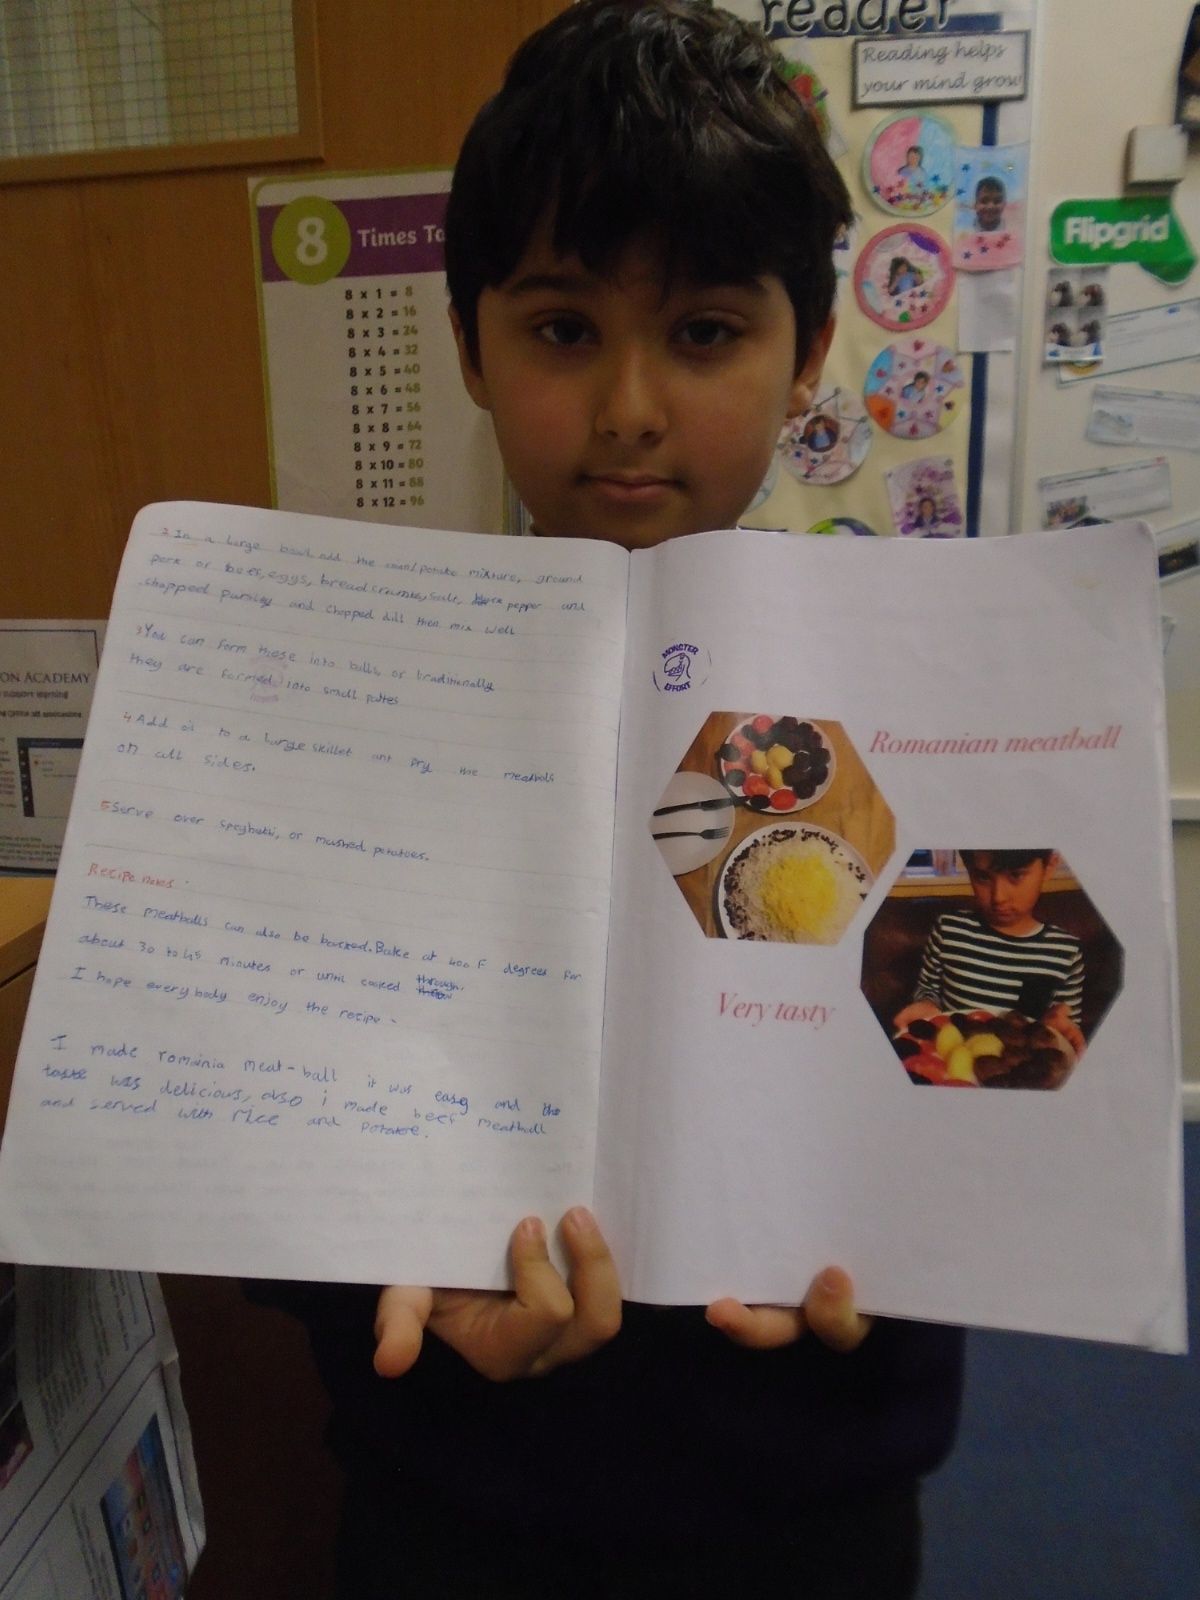 reader
Reading helps
your mind grow
Flipgrid
8 Times Ta
8 x 1 = 8
8 x 2 = 16
8 x 3 = 24
8 x 4 = 32
8 x 5 = 40
8 x 6 = 48
8 x 7 = 56
8 x 8 = 64
8 x 9 = 72
8 x 10 = 80
8 x 11 = 88
8 x 12 = 96
ON ACADEMY
support learning
2 In a large bowl add the potato mixture, ground
pork or beef, eggs, breadcrumbs, salt, pepper and
chopped parsley and chopped dill then mix well
3 You can form these into balls, or traditionally
they are formed into small patties
4 Add oil to a large skillet ant fry the meatballs
on all sides.
5 Serve over speghetti, or mashed potatoes.
Recipe notes -
These meatballs can also be backed. Bake at 400 F degrees for
about 30 to 45 minutes or until cooked through.
I hope everybody enjoy the recipe -
I made romania meat-ball it was easy and the
taste was delicious, also i made beef meatball
and served with rice and potatoe.
MONSTER
EFFORT
Romanian meatball
Very tasty